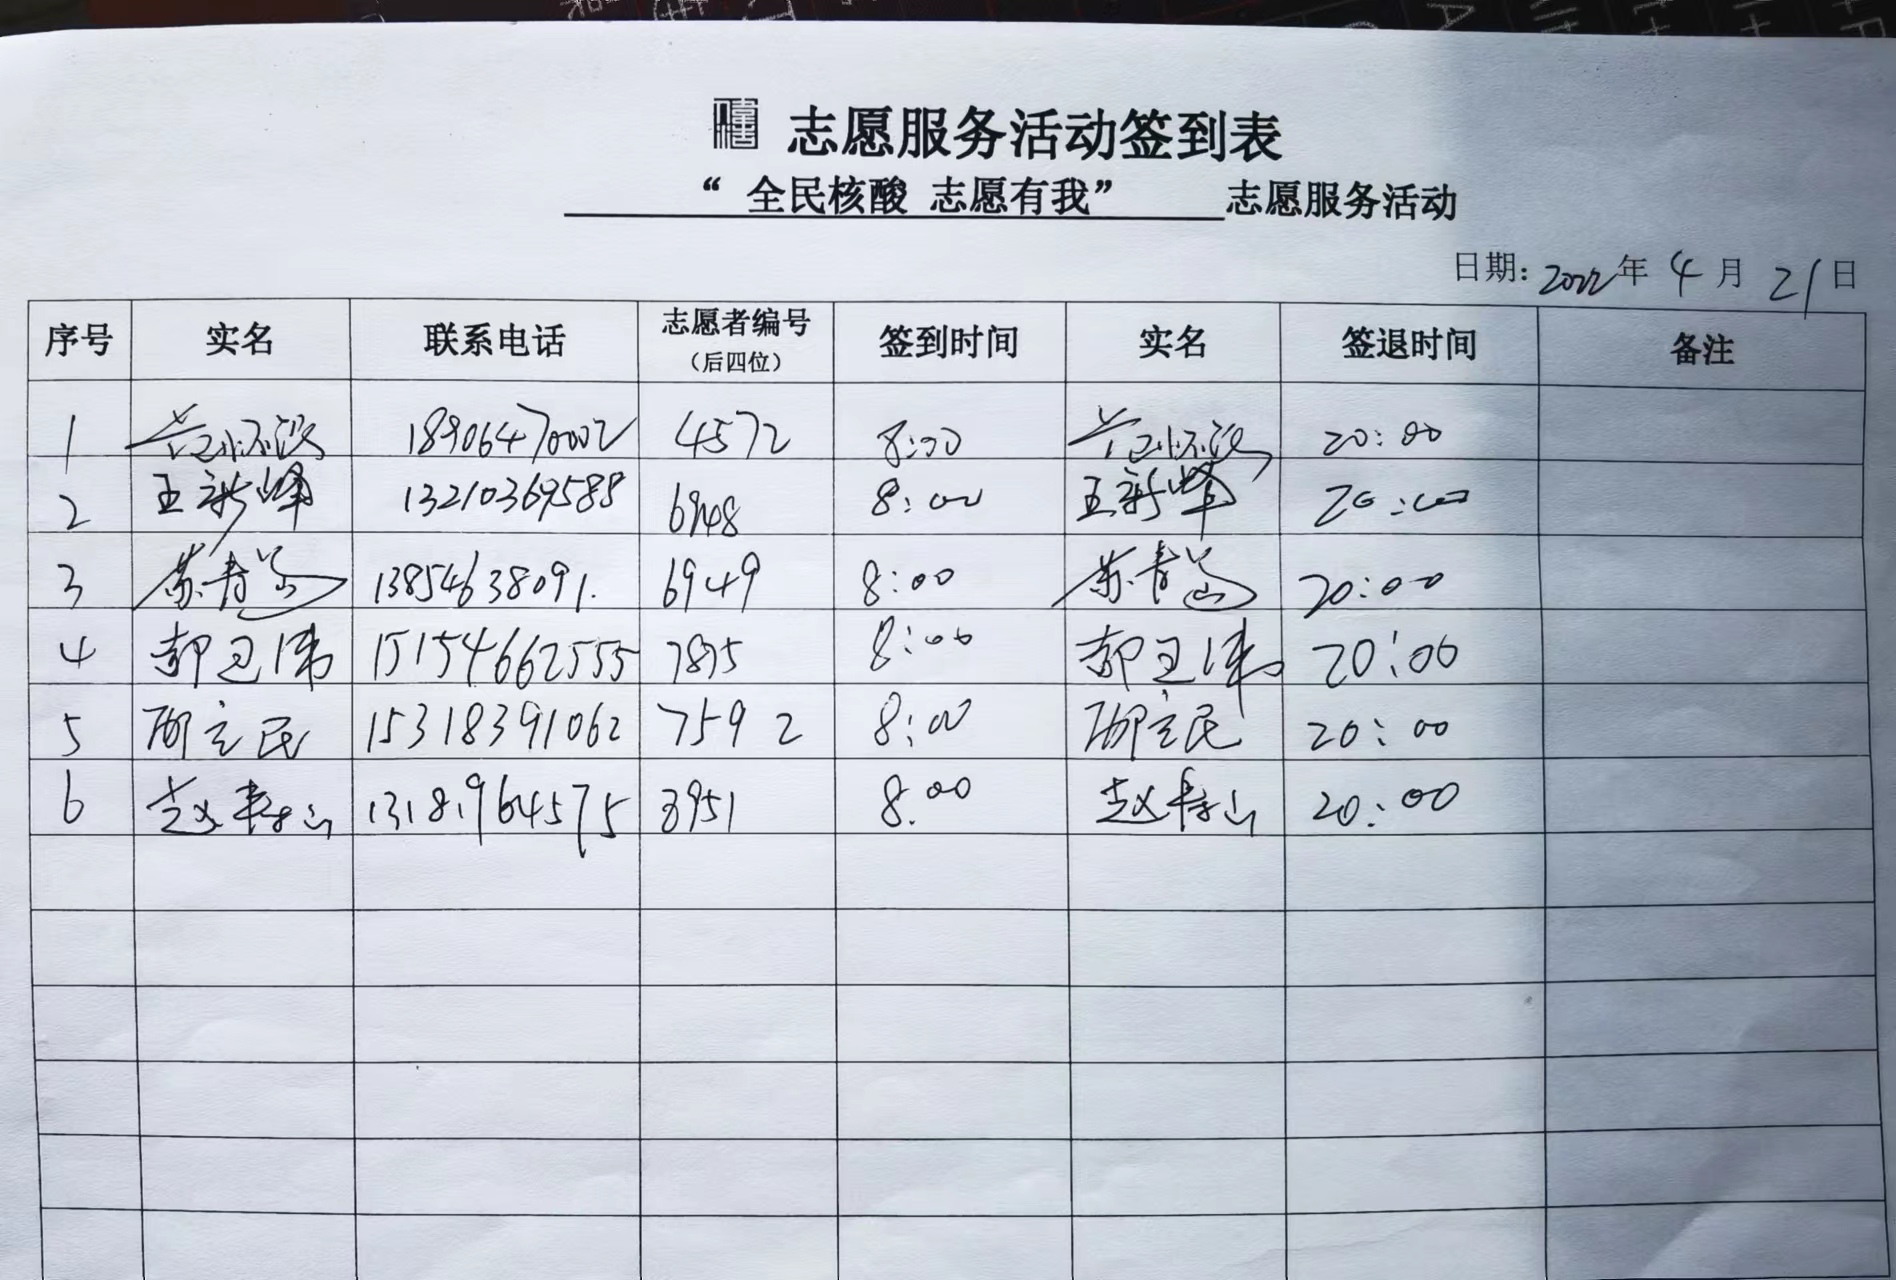 志愿服务活动签到表
“ 全民核酸 志愿有我” 志愿服务活动
日期: 2022 年 4 月 21 日
序号 实名 联系电话 志愿者编号 (后四位) 签到时间 实名 签退时间 备注
1 18906470002 4572 8:00 20:00
2 王新峰 13210369588 6948 8:00 王新峰 20:00
3 苏青 13854638091. 6949 8:00 苏青 20:00
4 郝卫伟 15154662555 7875 8:00 郝卫伟 20:00
5 邴立民 15318391062 7592 8:00 邴立民 20:00
6 赵寿山 13181964575 3951 8:00 赵寿山 20:00